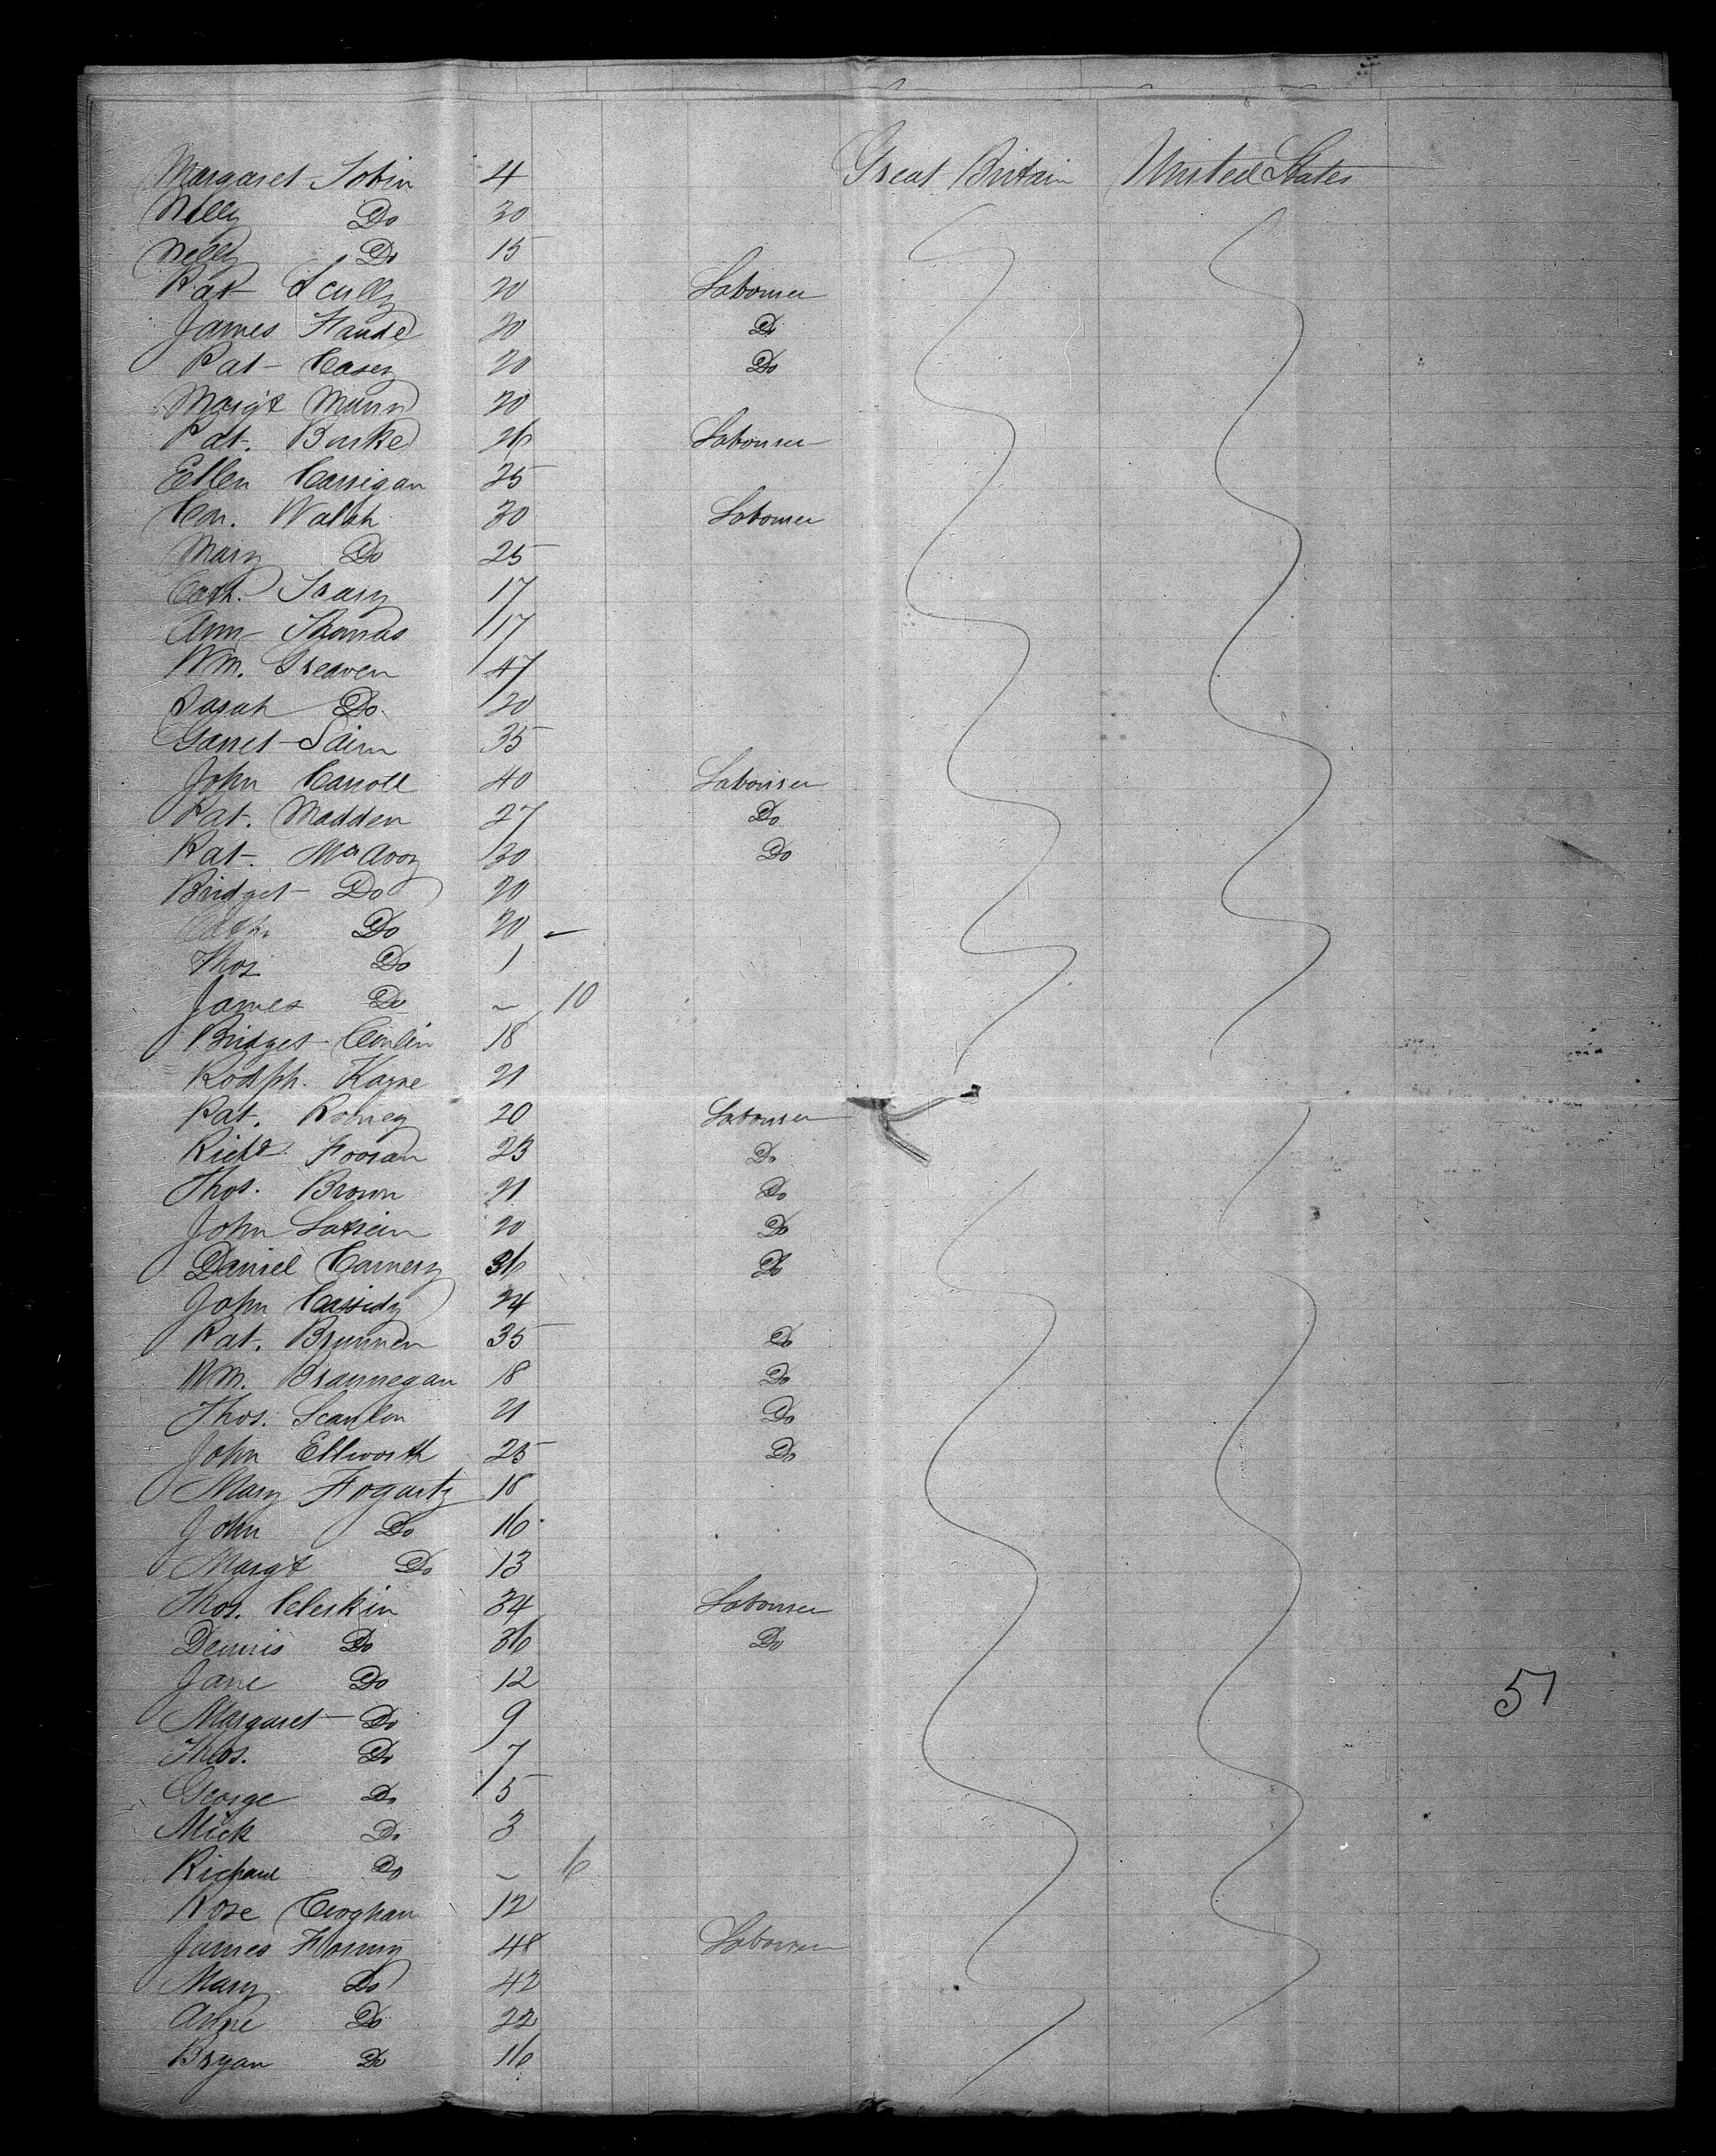 Margaret Tobin 4 Great Britain United States
Nelly Do 30
Nelly Do 15
Pat Scully 20 Labourer
James Haude 20 Do
Pat Casey 20 Do
Margt Munn 20
Pat. Burke 26 Labourer
Ellen Carrigan 25
Con. Walsh 30 Labourer
Mary Do 25
Cath. 17
Ann Thomas 17
Wm. Greaven 47
Sarah Do. 20
Garret 35
John Carroll 40 Labourer
Pat. Madden 27 Do
Pat. McAvoy 30 Do
Bridget Do 20
Cath. Do 20 –
Thos Do 1
James Do – 10
Bridget Conlin 18
Kayne 21
Pat. Rooney 20 Labourer
Richd. 23 Do
Thos. Brown 21 Do
John 20 Do
Daniel 36 Do
John Cassidy 24
Pat. Brunnen 35 Do
Wm. Brannegan 18 Do
Thos. Scanlon 21 Do
John Ellworth 25 Do
Mary Fogarty 18
John Do 16
Margt Do 13
Thos. Cleskin 34 Labourer
Dennis Do 36 Do
Jane Do 12
Margaret Do 9
Thos. Do 7
George Do 5
Mick Do 3
Richard Do – 6
Rose Croghan 12
James 48 Labourer
Mary Do 42
Anne Do 22
Bryan Do 16
51